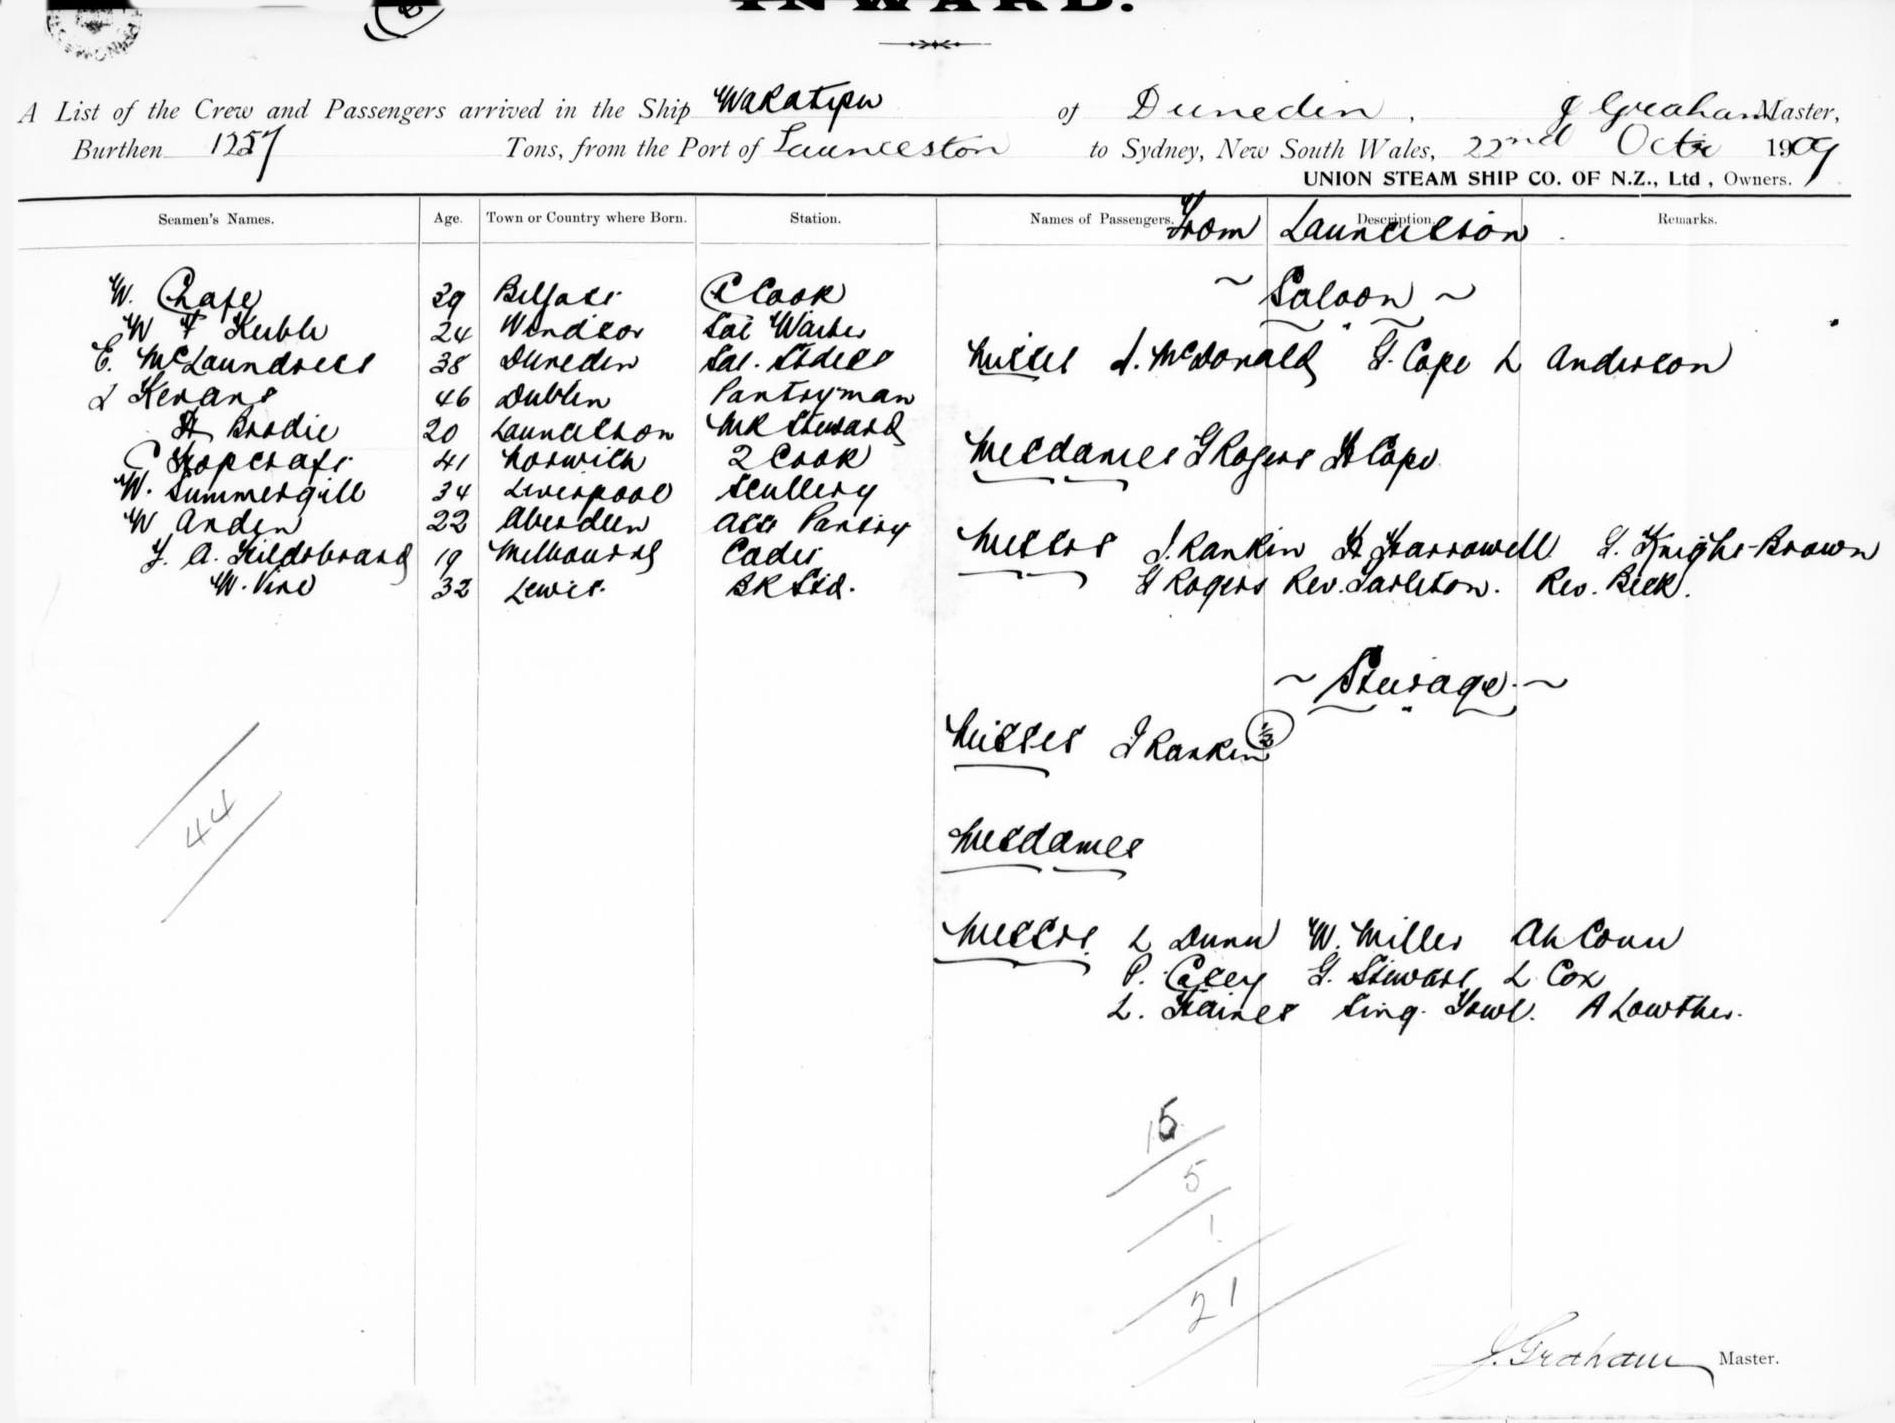 INWARD.
A List of the Crew and Passengers arrived in the Ship Wakatipu of Dunedin, J Graham Master,
Burthen 1257 Tons, from the Port of Launceston to Sydney, New South Wales, 22nd Octr 1909
UNION STEAM SHIP CO. OF N.Z., Ltd, Owners.
Seamen's Names. Age. Town or Country where Born. Station. Names of Passengers. Description. Remarks.
From Launceston.
W. Chafe 29 Belfast C Cook
~ Saloon ~
W F Keble 24 Windsor Sal Waiter
E. McLaundress 38 Dunedin Sal. Stdess
Misses J. McDonald G. Cope L Anderson
J Kerans 46 Dublin Pantryman
H Brodie 20 Launceston MR Steward
C Hopcraft 41 Norwich 2 Cook
Mesdames G Rogers H Cope
W. Summergill 34 Liverpool Scullery
W Arden 22 Aberdeen Asst Pantry
Messrs J. Rankin H Harrowell G. Knight-Brown
F. A. Hildebrand 19 Melbourne Cadet
G Rogers Rev. Tarleton. Rev. Beck.
W. Vine 32 Lewis. BR Std.
~ Steerage. ~
Misses J Rankin 1/2
44
Mesdames
Messrs. L Dunn W. Miller Ah Coun
P. Casey G. Stewart L Cox
L. Haines Sing. Fowl. A Lowther.
15
5
1
21
J. Graham Master.